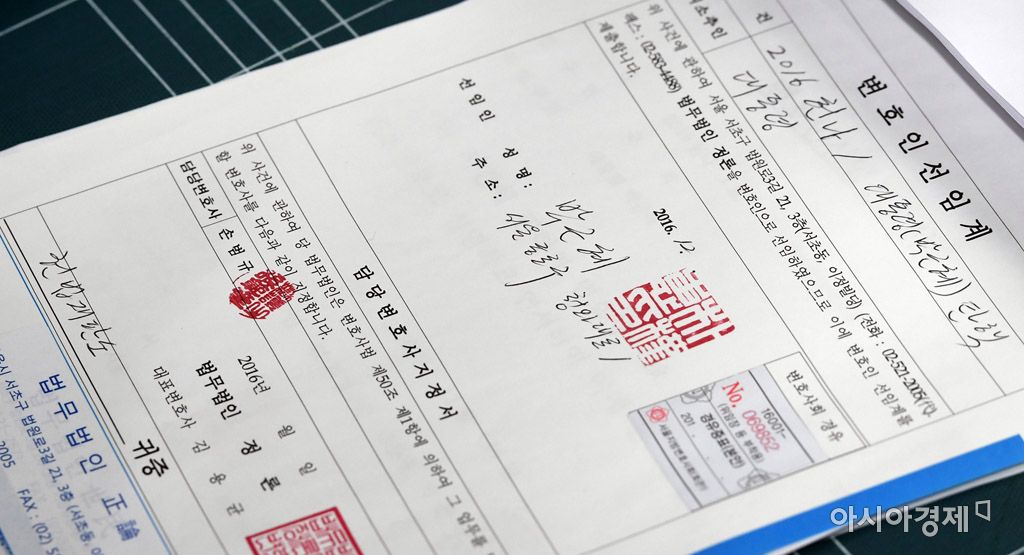 변 호 인 선 임 계
2016 헌나 1 대통령(박근혜) 탄핵
대통령
위 사건에 관하여 서울 서초구 법원로3길 21, 3층(서초동, 이정빌딩) (전화 : 02-521-2005(代),
팩스 : (02-583-4488) 법무법인 정론을 변호인으로 선임하였으므로 이에 변호인 선임계를
제출합니다.
변호사회 경유
16001-
No. 069852
(위임장 등 부착용)
경유증표(본안)
201 . .
서울지방변호사회
2016. 12.
선 임 인 성 명 : 박근혜
주 소 : 서울 종로구 청와대로 1
담 당 변 호 사 지 정 서
위 사건에 관하여 당 법무법인은 변호사법 제50조 제1항에 의하여 그 업무를
할 변호사를 다음과 같이 지정합니다.
담당변호사 손 범 규
2016년 월 일
법무법인 정 론
대표변호사 김 용 균
헌법재판소 귀중
법 무 법 인 正 論
서울시 서초구 법원로3길 21, 3층 (서초동, 이
2005 FAX : (02) 5
아시아경제